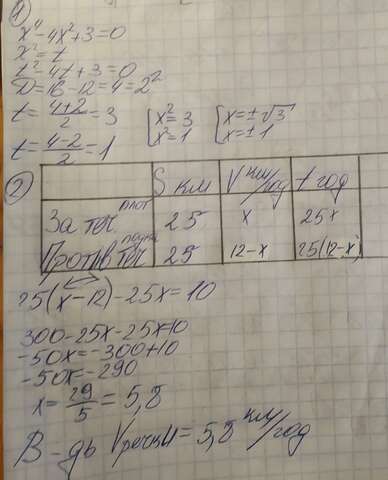 1)
x⁴-4x²+3=0
x²=t
t²-4t+3=0
D=16-12=4=2²
t=(4+2)/2=3 [x²=3 [x=±√3
t=(4-2)/2=1 x²=1 x=±1
2) S км V км/год t год
За теч. плот 25 x 25x
Против теч 25 12-x 25(12-x)
25(x-12)-25x=10
300-25x-25x=10
-50x=-300+10
-50x=-290
x=29/5=5,8
В-дь Vречки=5,8 км/год